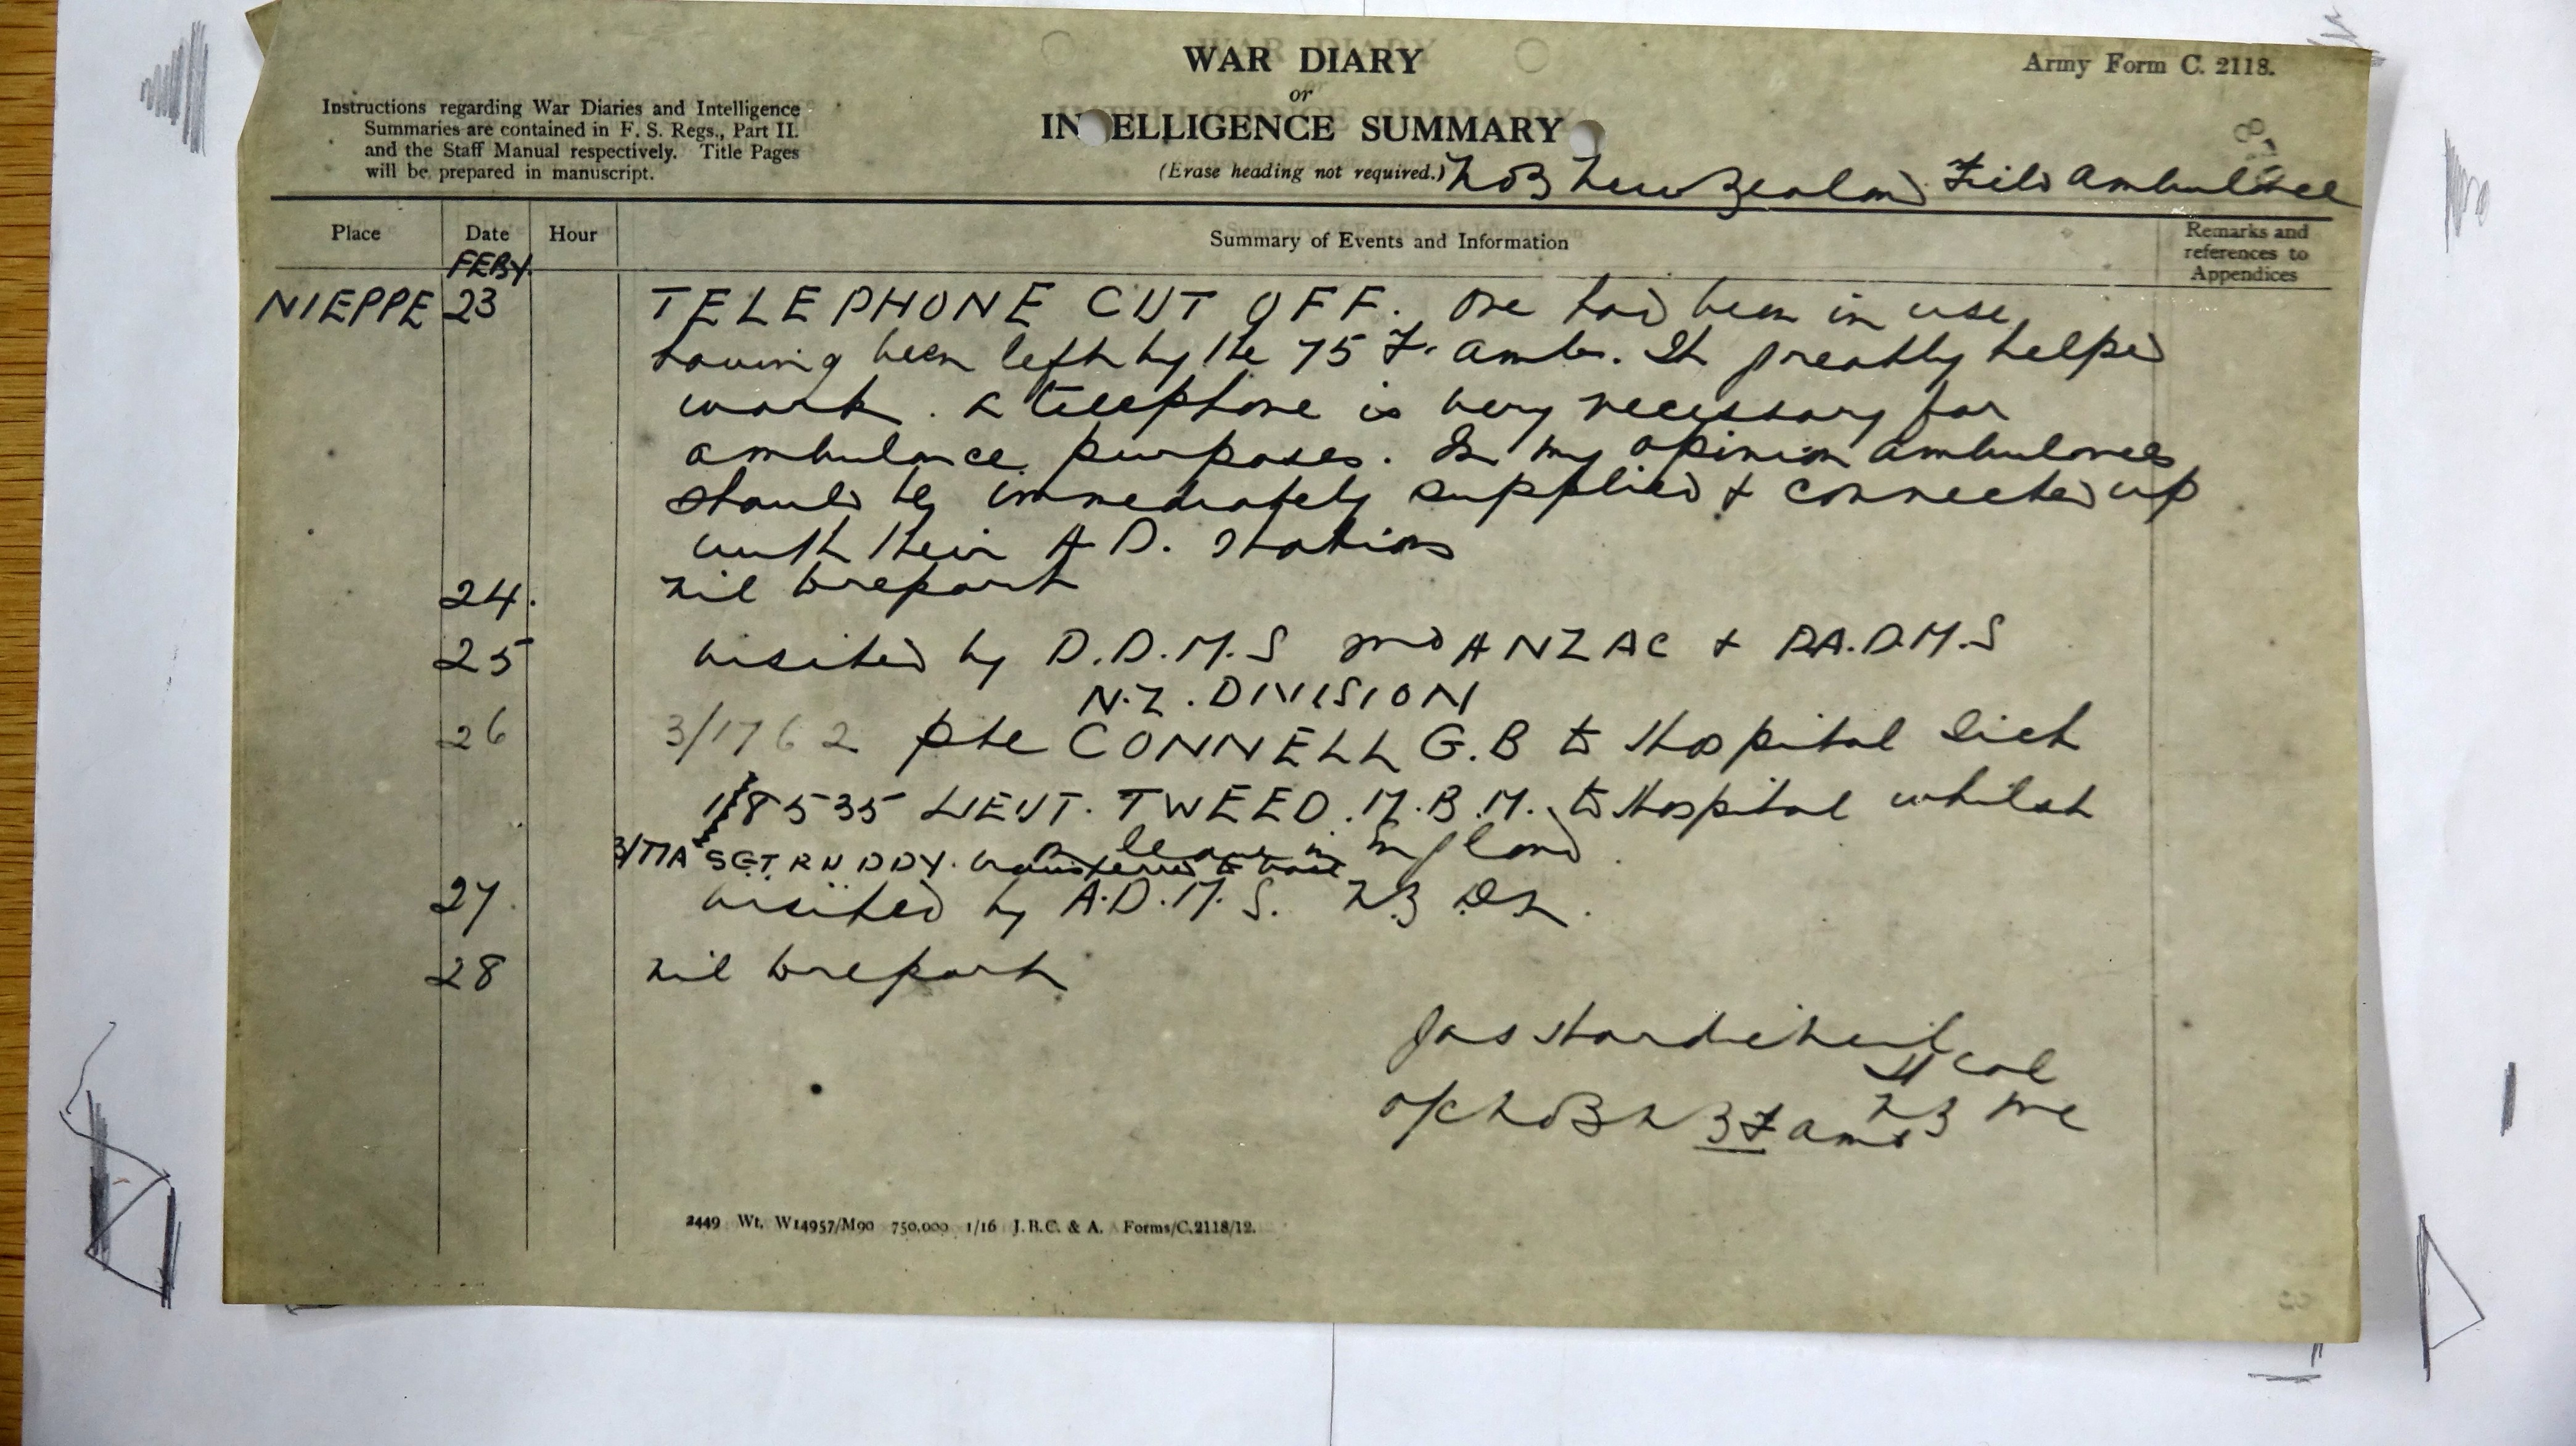 WAR DIARY
or
INTELLIGENCE SUMMARY
(Erase heading not required.)
Army Form C. 2118.
Instructions regarding War Diaries and Intelligence
Summaries are contained in F. S. Regs., Part II.
and the Staff Manual respectively. Title Pages
will be prepared in manuscript.
No 3 New Zealand Field Ambulance
Place Date Hour Summary of Events and Information Remarks and
references to
Appendices
FEBY.
NIEPPE 23 TELEPHONE CUT OFF. One had been in use
having been left by the 75 F. Amb. It greatly helped
work. A telephone is very necessary for
ambulance purposes. In my opinion ambulances
should be immediately supplied & connected up
with their A.D. Stations
24. nil to report
25 visited by D.D.M.S 2nd ANZAC & D.A.D.M.S
N.Z. DIVISION
26 3/1762 Pte CONNELL G.B to Hospital Sick
18535 LIEUT. TWEED. M.B.M. to Hospital whilst
on leave in England
3/171A SGT RUDDY. transferred to base
27. visited by A.D.M.S. NZ Dn.
28 nil to report
Jas Hardie Neil
Lt Col
NZ MC
O/C No 3 NZ F Amb
2449 Wt. W14957/M90 750,000 1/16 J.B.C. & A. Forms/C.2118/12.